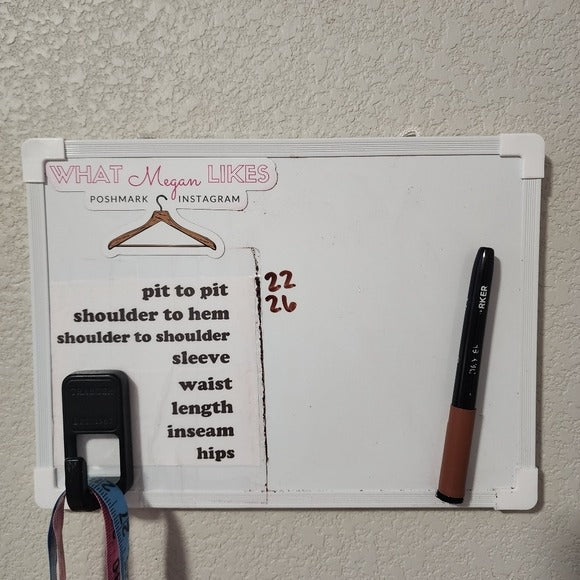 WHAT Megan LIKES
POSHMARK INSTAGRAM
pit to pit 22
shoulder to hem 26
shoulder to shoulder
sleeve
waist
length
inseam
hips